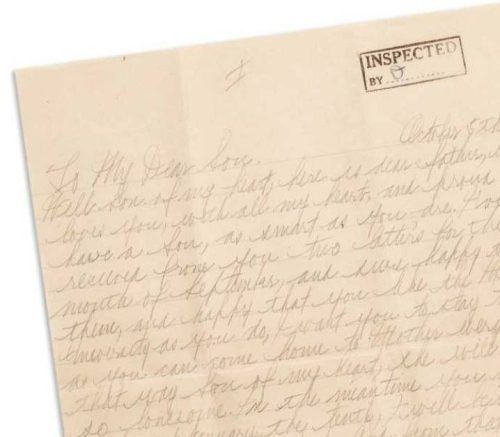 INSPECTED
BY
I
October 5th
To My Dear Son.
Well son of my heart, here is dear father,
loves you, with all my heart, and proud
have a Son, as smart as you are. I
received from you two latters for the
month of September, and sure happy
them, and happy that you like the
University as you do, I want you to stay
as you can come home to Mother
that way Son of my heart, she will
so lonesome. In the meantime you
the truth, I will be